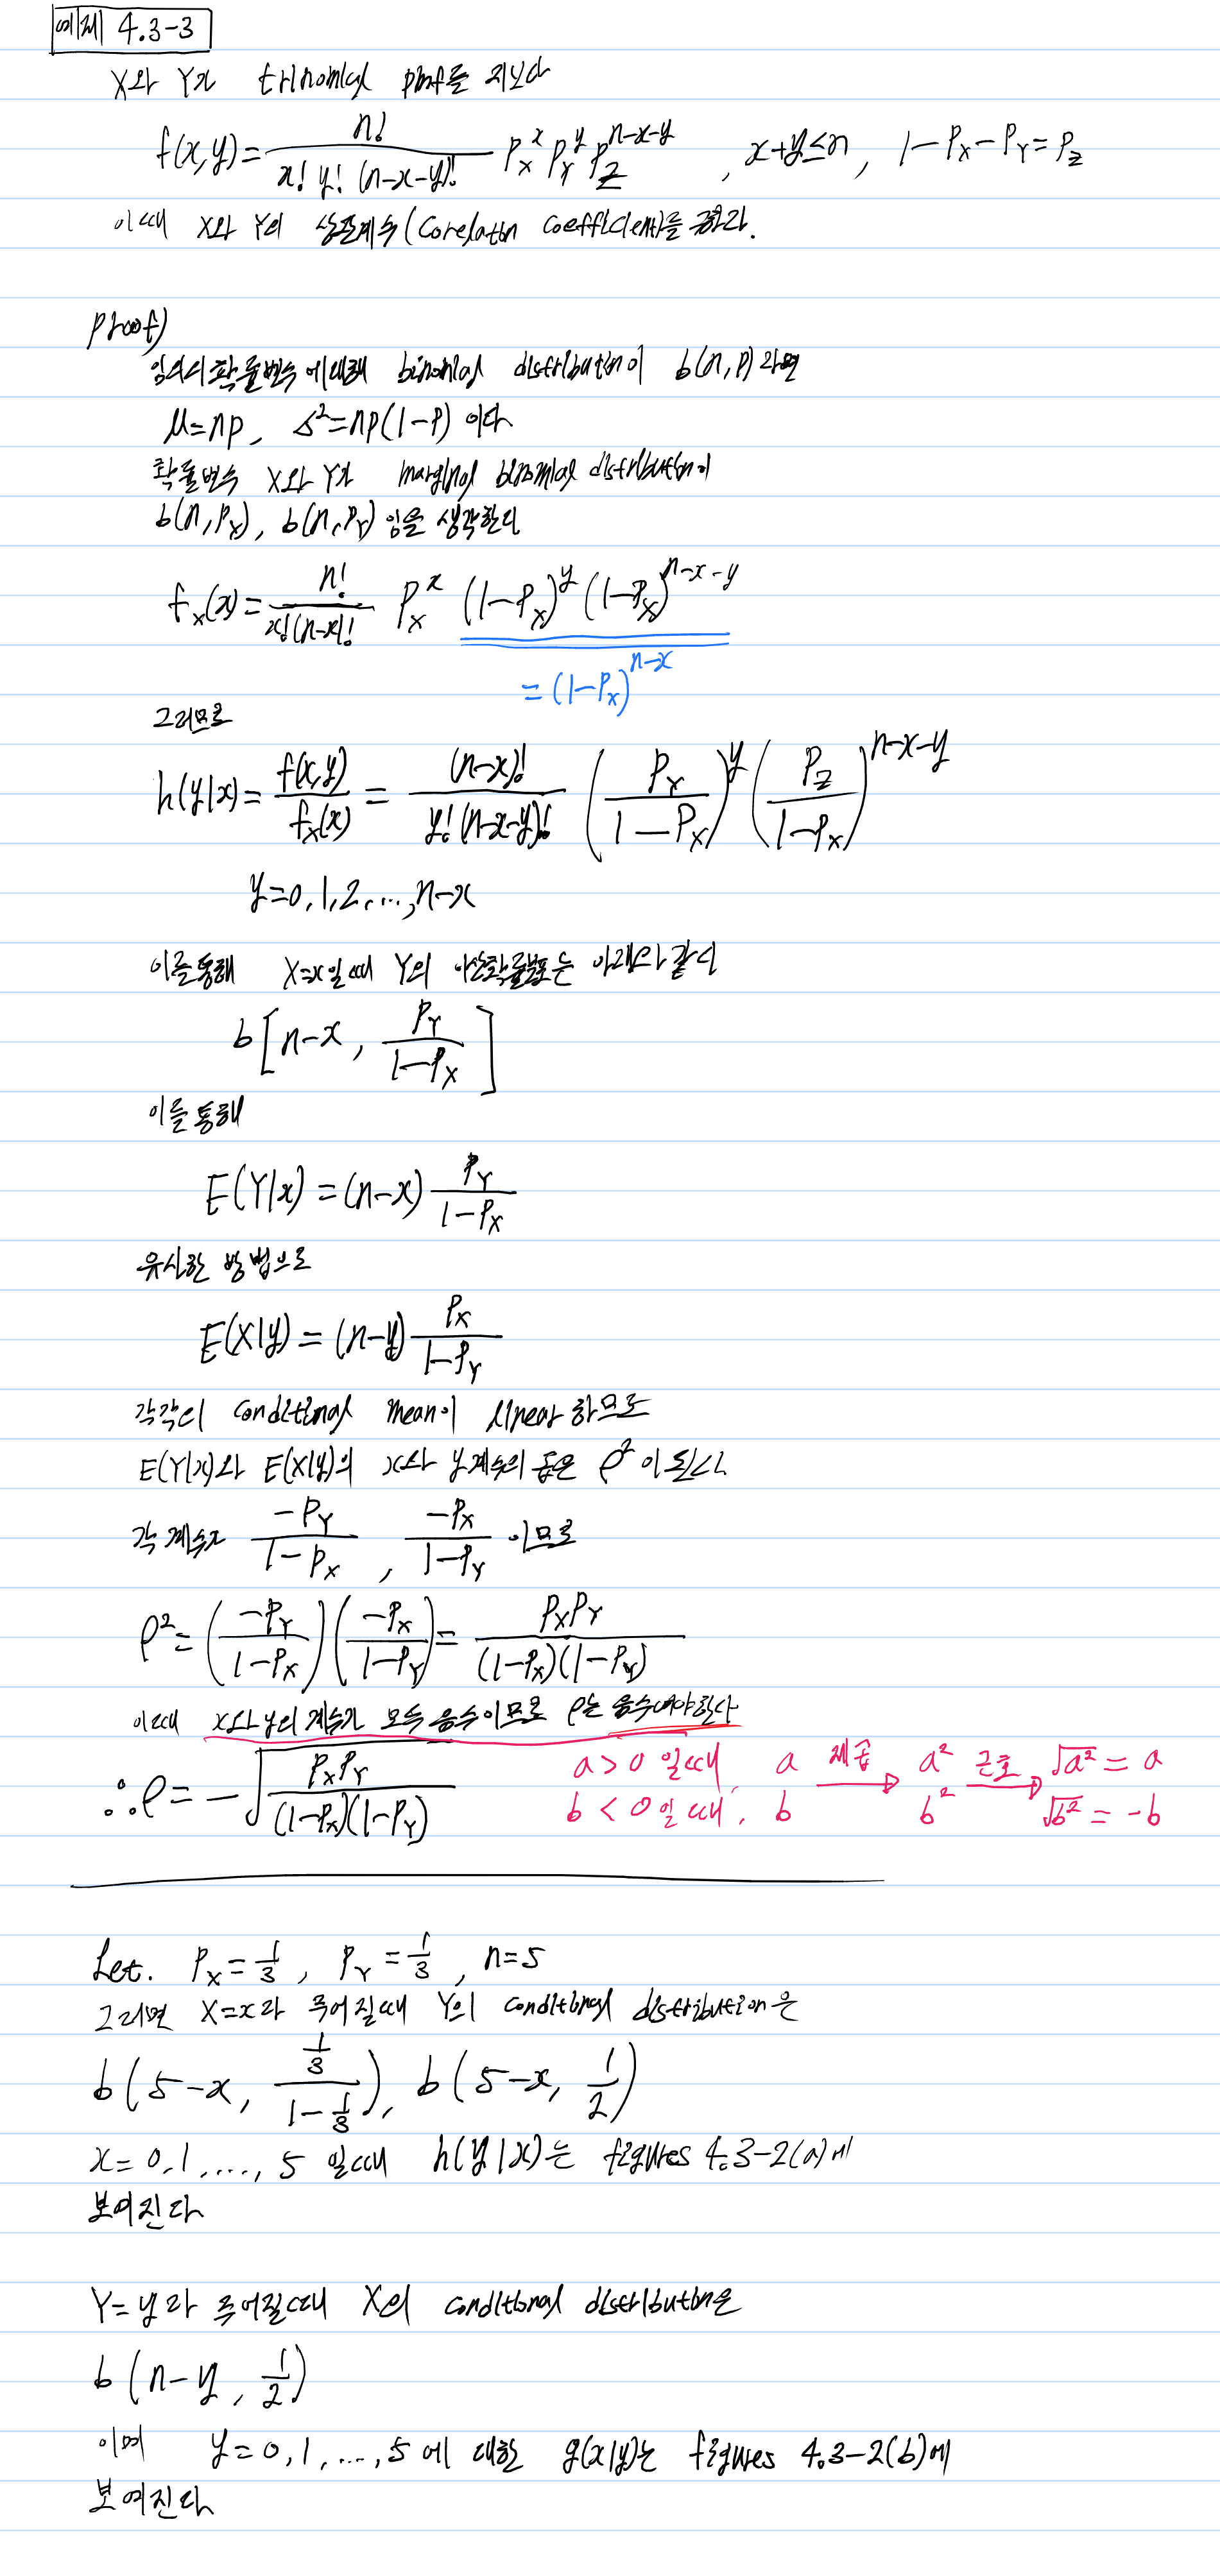 예제 4.3-3
X와 Y가 trinomial pmf를 지닌다
f(x,y)= n!/(x! y! (n-x-y)!) P_X^x P_Y^y P_Z^(n-x-y) , x+y≤n, 1-P_X-P_Y=P_Z
이때 X와 Y의 상관계수(Corelation coefficient)를 구하라.
proof)
임의의 확률변수에 대해 binomial distribution이 b(n,p)라면
μ=np, s²=np(1-p) 이다
확률변수 X와 Y가 marginal binomial distribution이
b(n,P_X), b(n,P_Y) 임을 생각한다
f_X(x)= n!/(x!(n-x)!) P_X^x (1-P_X)^y (1-P_X)^(n-x-y)
=(1-P_X)^(n-x)
그러므로
h(y|x)= f(x,y)/f_X(x) = (n-x)!/(y!(n-x-y)!) (P_Y/(1-P_X))^y (P_Z/(1-P_X))^(n-x-y)
y=0,1,2,...,n-x
이를 통해 X=x일때 Y의 이산확률분포는 아래와 같다
b[n-x, P_Y/(1-P_X)]
이를 통해
E(Y|x)=(n-x) P_Y/(1-P_X)
유사한 방법으로
E(X|y)=(n-y) P_X/(1-P_Y)
각각의 conditional mean이 linear 하므로
E(Y|x)와 E(X|y)의 x와 y 계수의 곱은 ρ² 이 된다.
각 계수가 -P_Y/(1-P_X) , -P_X/(1-P_Y) 이므로
ρ²=(-P_Y/(1-P_X))(-P_X/(1-P_Y))= P_X P_Y/((1-P_X)(1-P_Y))
이때 x와 y의 계수가 모두 음수이므로 ρ는 음수여야한다
∴ρ=-√(P_X P_Y/((1-P_X)(1-P_Y)))
a>0 일때, a 제곱→ a² 근호→ √a²=a
b<0일때, b b² √b²=-b
Let. P_X=1/3, P_Y=1/3, n=5
그러면 X=x라 주어질때 Y의 conditional distribution은
b(5-x, (1/3)/(1-1/3)), b(5-x, 1/2)
x=0,1,...,5 일때 h(y|x)는 figures 4.3-2(a)에
보여진다
Y=y라 주어질때 X의 conditional distribution은
b(n-y, 1/2)
이며 y=0,1,...,5에 대한 g(x|y)는 figures 4.3-2(b)에
보여진다